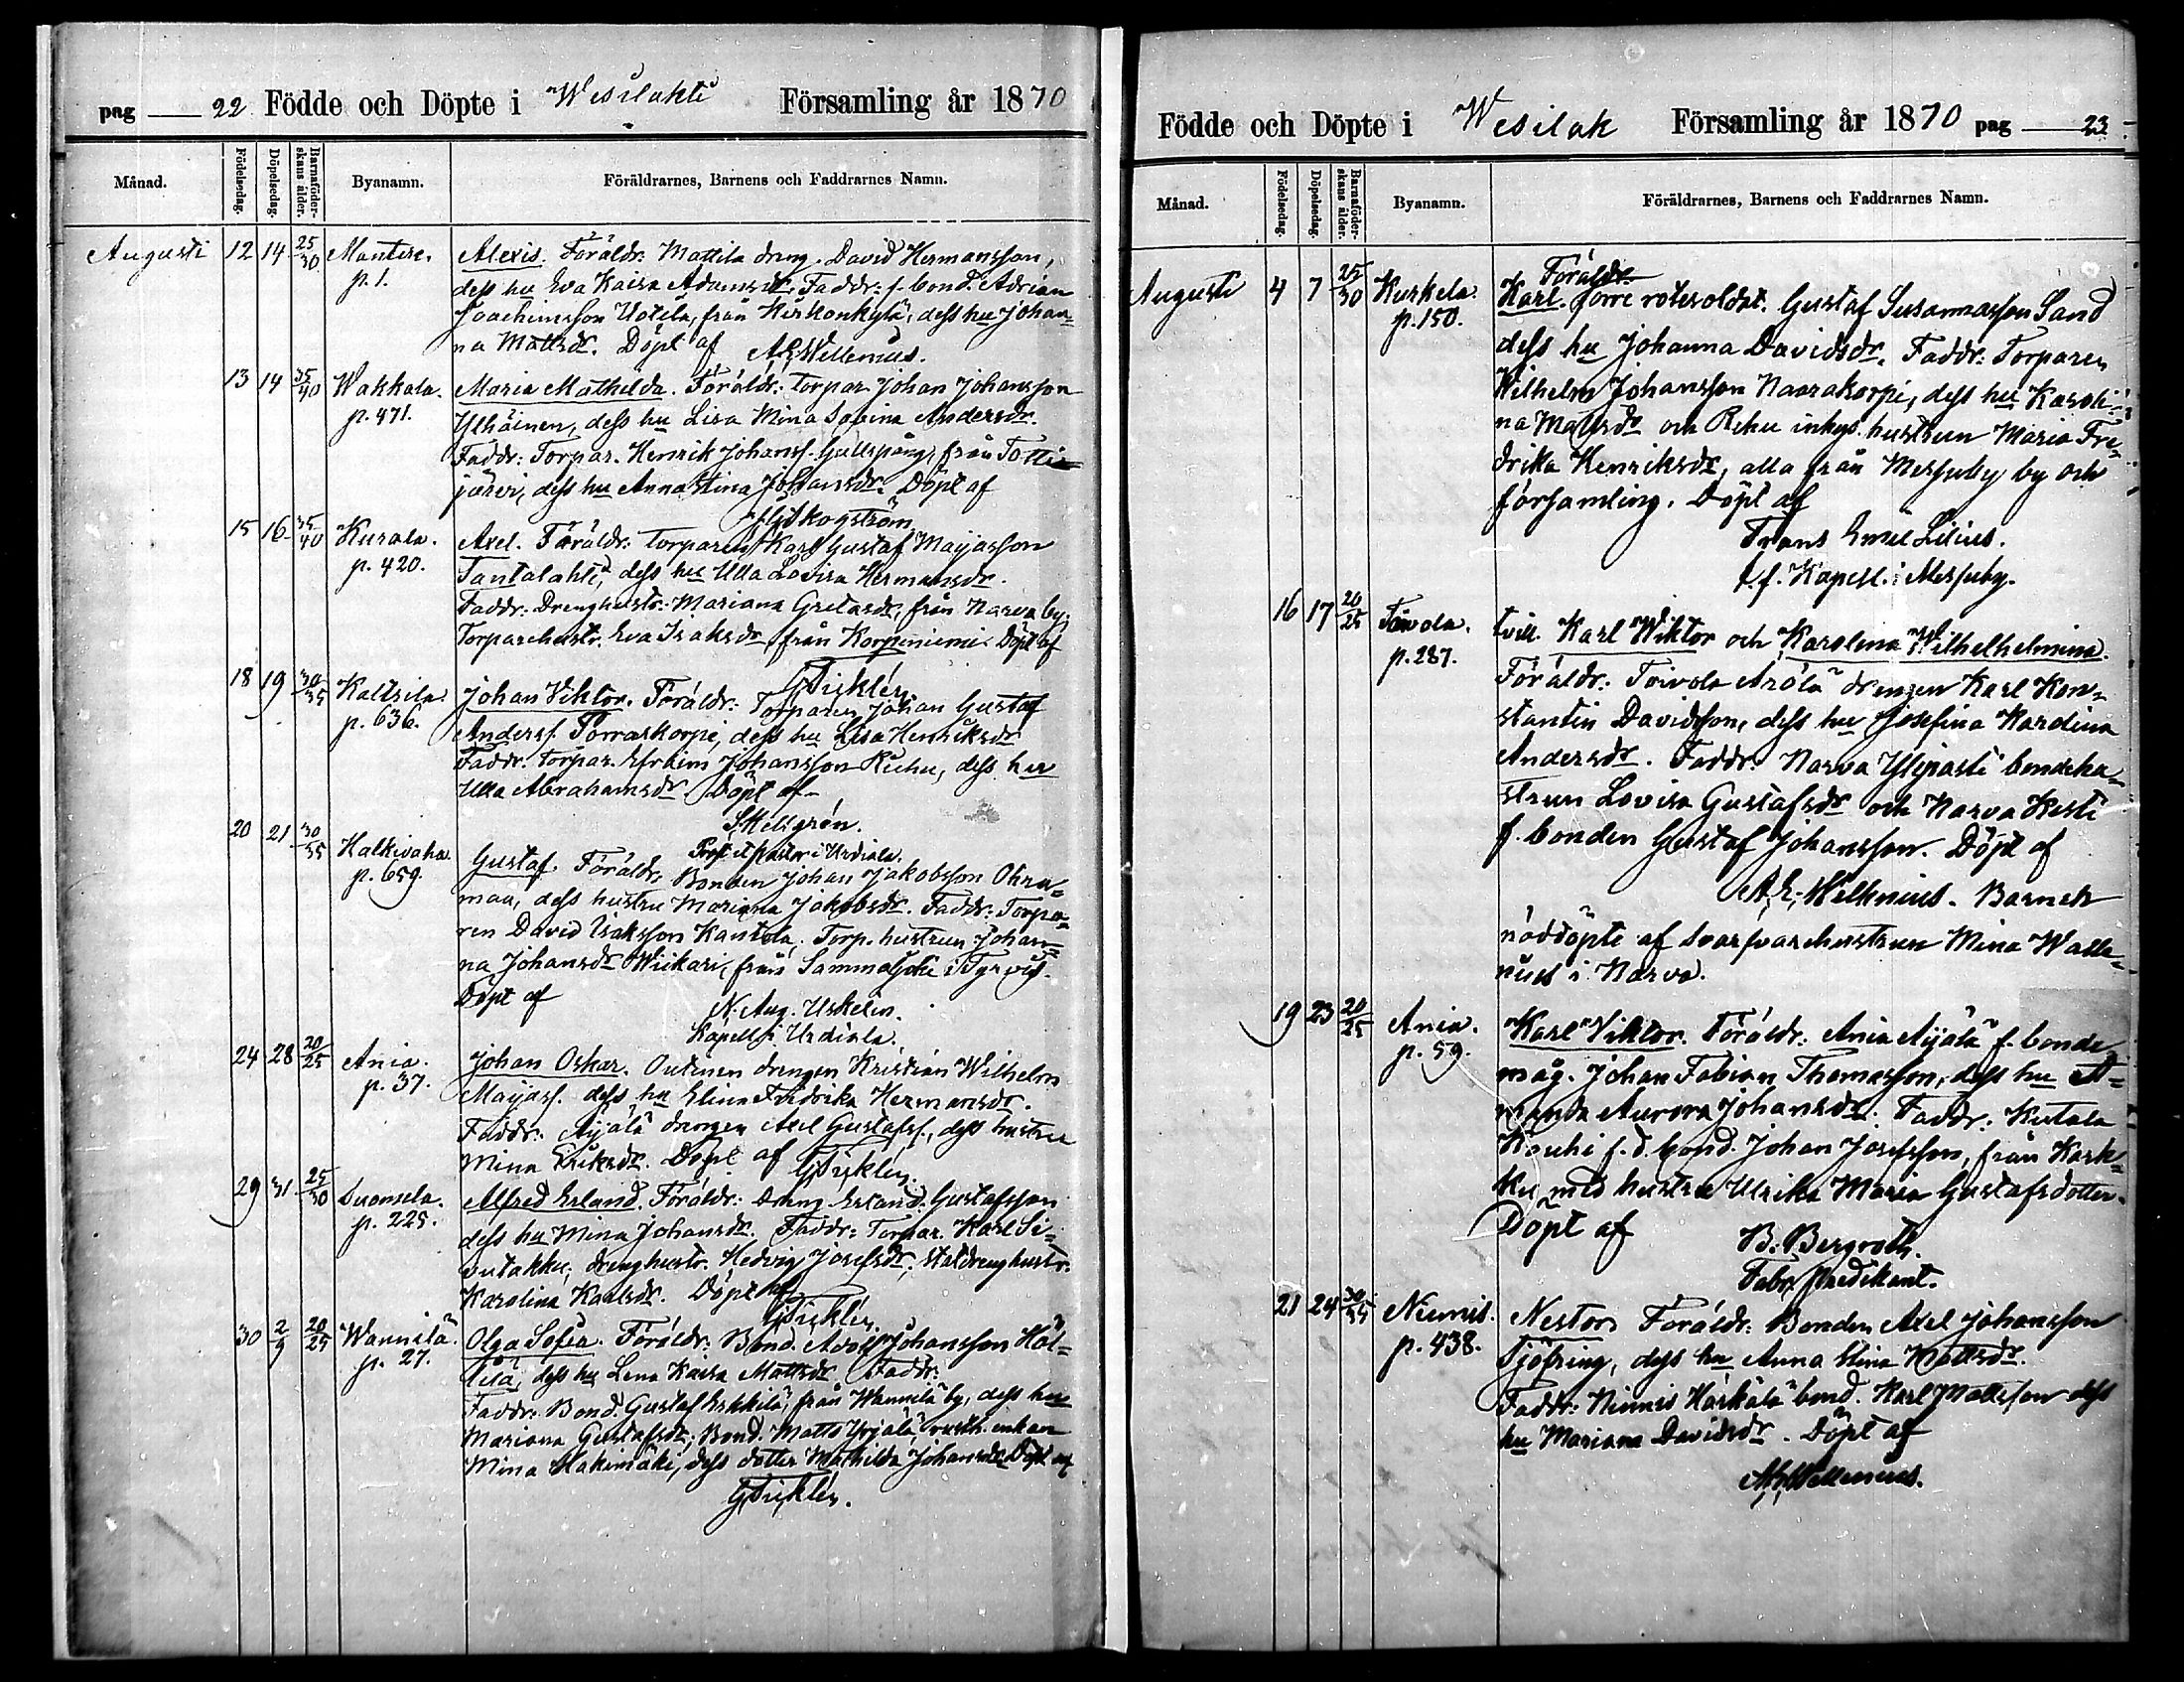 pag 22 Födde och Döpte i Wesilakti Församling år 1870
Månad. Födelsedag. Döpelsedag. Barnaföderskans ålder. Byanamn. Föräldrarnes, Barnens och Faddrarnes Namn.
Augusti 12 14 25/30 Mantere. Alexis. Föräldr: Mattila dreng. David Hermansson,
p. 1. dess hu Eva Kaisa Adamsdr. Faddr: f. bond. Adrian
Joachimsson Uotila, från Kirkonkylä, dess hu Johan=
na Mattsdr. Döpt af A.E. Wellenius.
13 14 35/40 Wakkala. Maria Mathilda. Föräldr: torpar. Johan Johansson
p. 471. dess hu Lisa Mina Sofina Andersdr.
Faddr: Torpar. Henrik Johanss. från Totti=
järvi, dess hu Anna Stina Johansdr. Döpt af
Skogström
15 16 35/40 Kurala. Axel. Föräldr: torparen Karl Gustaf Maijasson
p. 420. Tantalahti, dess hu Ulla Lovisa Hermansdr.
Faddr: Drenghustr. Mariana Gretasdr, från Narva by,
Torparehustr. Eva Isaksdr från Korpiniemi. Döpt af
G. Firklén.
18 19 30/35 Kaltsila. Johan Viktor. Föräldr: Torparen Johan Gustaf
p. 636. Anderss. Porraskorpi, dess hu Lisa Henriksdr
Faddr. torpar. Efraim Johansson dess hu
Ulla Abrahamsdr. Döpt af
S. Hellgrén.
20 21 30/35 Halkivaha. Prost et Pastor i Urdiala.
p. 659. Gustaf. Föräldr: Bonden Johan Jakobsson Ohra=
maa, dess hustru Mariana Jakobsdr. Faddr: Torpa=
ren David Isaksson Kantola, Torp. hustrun Johan=
na Johansdr Wiikari, från Sammaljoki i Tyrvis.
Döpt af N. Aug. Uskelin.
Kapell. i Urdiala.
24 28 20/25 Ania. Johan Oskar. Outinen drengen Kristian Wilhelm
p. 37. Maijass. dess hu Elina Fredrika Hermansdr.
Faddr. Äijälä drengen Axel Gustafss., dess hustru
Mina Eriksdr. Döpt af G. Firklén.
29 31 25/30 Suomela. Alfred Erland. Föräldr: Dreng. Erland Gustafsson
p. 225. dess hu Mina Johansdr. Faddr: Torpar. Karl Si=
vutakku, drenghustr. Hedvig Josefsdr, statdrenghustr.
Karolina Karlsdr. Döpt af
G. Firklén.
30 2/9 20/25 Wannilä. Olga Sofia. Föräldr: Bond. Adolf Johansson Höl=
p. 27. tilä, dess hu Lena Kaisa Mattsdr Faddr:
Faddr. Bond. Gustaf Erkkilä, från Wannilä by, dess hu
Mariana Gustafsdr, Bond. Matts Yrjälä rusth. enkan
Mina Hakimäki, dess dotter Mathilda Johansdr. Döpt af
G. Firklén.
Födde och Döpte i Wesilak Församling år 1870 pag 23
Månad. Födelsedag. Döpelsedag. Barnaföderskans ålder. Byanamn. Föräldrarnes, Barnens och Faddrarnes Namn.
Föräldr.
Augusti 4 7 25/30 Kurkela. Karl. förre rotesoldat. Gustaf Susannasson Sand
p. 150. dess hu Johanna Davidsdr. Faddr: Torparen
Wilhelm Johansson Naarakorpi, dess hu Karoli=
na Mattsdr och inhys. hustrun Maria Fre=
drika Henriksdr, alla från Messuby by och
församling. Döpt af
Frans Emil Lilius.
t. f. Kapell. i Messuby.
16 17 20/25 Toivola. tvill. Karl Wiktor och Karolina Wilhelhelmina.
p. 287. Föräldr: Toivola Arola drengen Karl Kon=
stantin Davidsson, dess hu Josefina Karolina
Andersdr. Faddr: Narva Ylipasti bondehu=
strun Lovisa Gustafsdr och Narva Kesti
f. bonden Gustaf Johansson. Döpt af
A.E. Wellenius. Barnen
nöddöpte af svarfvarehustrun Mina Walle=
nius i Narva.
19 23 20/25 Ania. Karl Viktor. Föräldr: Ania Äijälä f. bonde
p. 59. måg. Johan Fabian Thomasson, dess hu A=
manda Aurora Johansdr. Faddr: Kutala
Kouhi f. d. bond. Johan Josefsson, från Kark=
ku med hustru Ulrika Maria Gustafsdotter.
Döpt af B. Bergroth.
Fabr. Predikant.
21 24 30/35 Niemis. Nestor. Föräldr: Bonden Axel Johansson
p. 438. Sjöfring, dess hu Anna Stina Mattsdr.
Faddr: Niemis Härkälä bond. Karl Mattsson dess
hu Mariana Davidsdr. Döpt af
A.E. Wellenius.